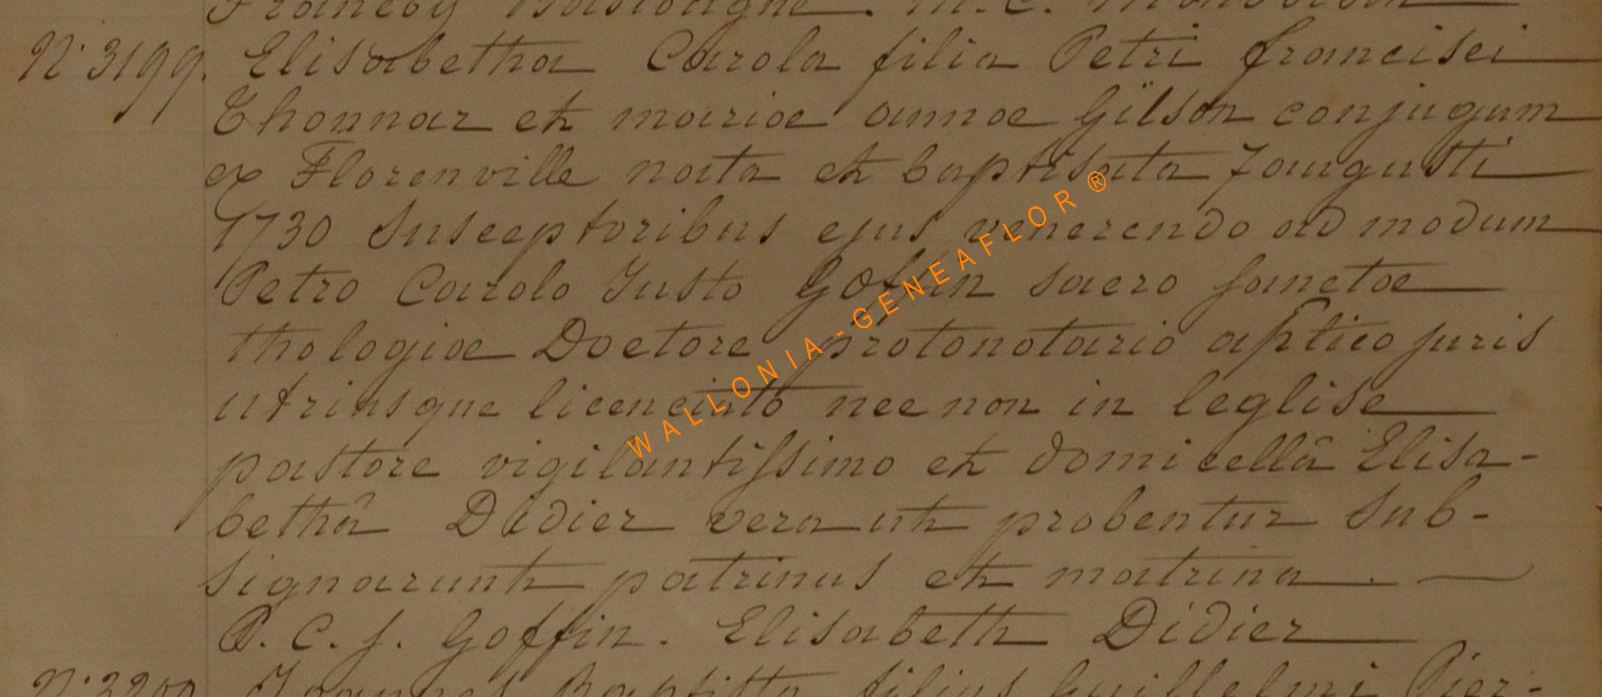 N° 3199. Elisabetha Carola filia Petri francisci
Thonnar et mariae annae Gilson conjugum
ex Florenville nata et baptisata 7 augusti
1730 Susceptoribus ejus venerendo ad modum
Petro Carolo Justo Goffin sacro sanctae
thologiae Doctore protonotario aptico juris
utriusque licenciato nec non in leglise
pastore vigilantissimo et domicellâ Elisa-
bethâ Didier vera ut probentur Sub-
signarunt patrinus et matrina. —
P. C. J. Goffin. Elisabeth Didier
N° 3200 Joannes Baptista filius Guillelmi Pier-
WALLONIA-GENEAFLOR ®